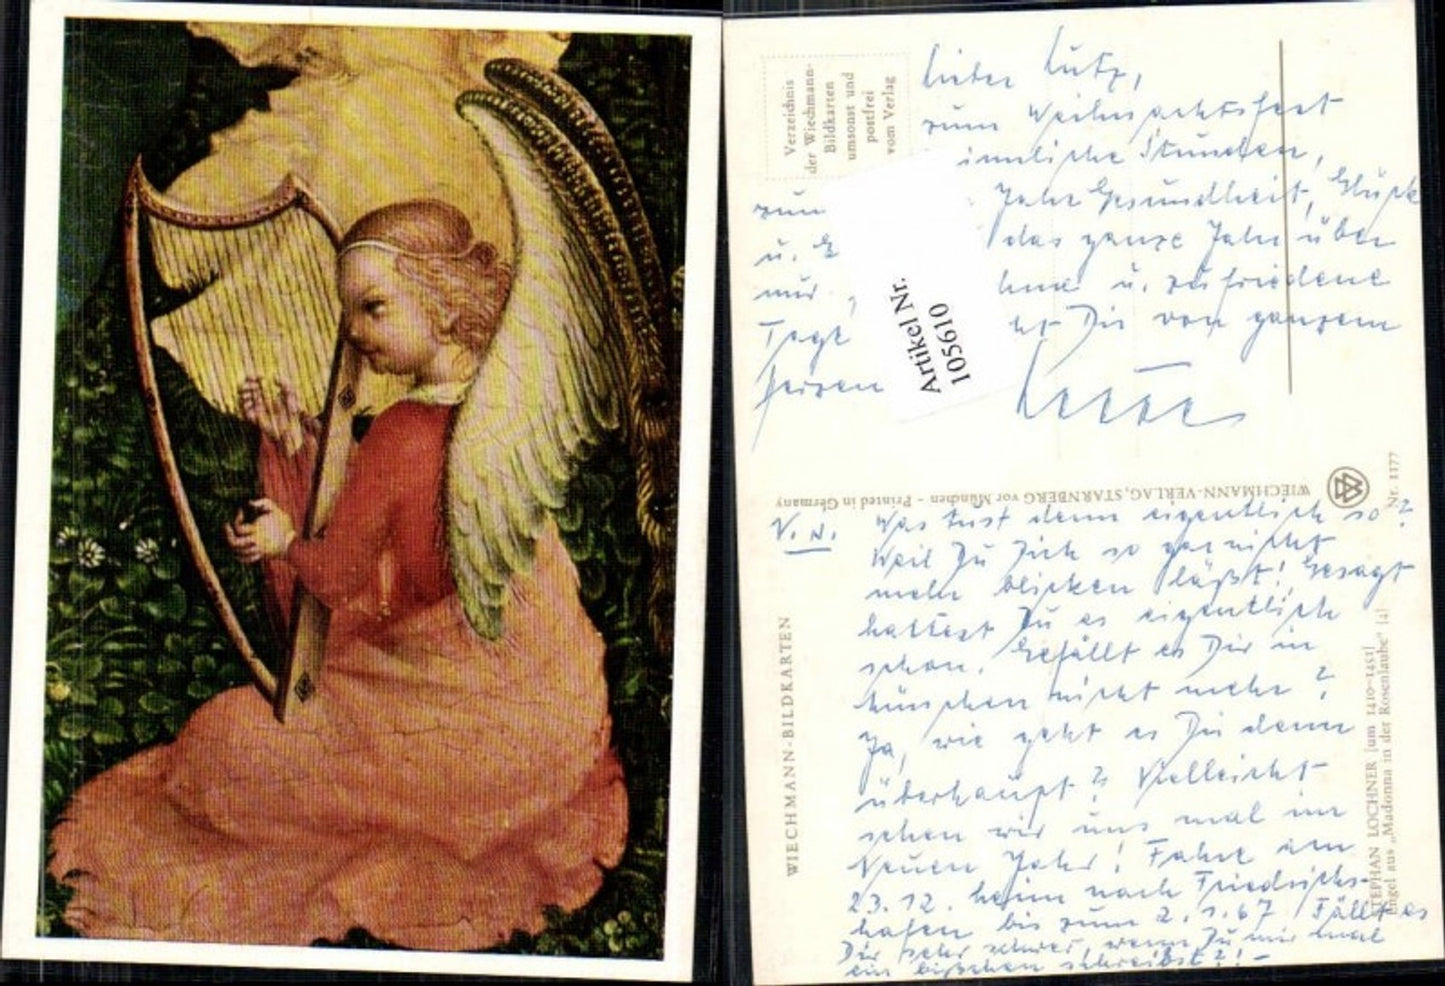 Verzeichnis
der Wiechmann-
Bildkarten
umsonst und
postfrei
vom Verlag
Lieber Lutz,
zum Weihnachtsfest
innliche Stunden,
zum Jahr Gesundheit, Glück
u. das ganze Jahr über
nur u. zufriedene
Tage Dir von ganzem
Herzen
Artikel Nr.
105610
WIECHMANN-VERLAG, STARNBERG vor München - Printed in Germany
Nr. 1177
V. N. Was tust denn eigentlich so?
Weil Du Dich so gar nicht
mehr blicken läßt! Gesagt
hattest Du es eigentlich
schon. Gefällt es Dir in
München nicht mehr?
Ja, wie geht es Dir denn
überhaupt? Vielleicht
sehen wir uns mal im
Neuen Jahr! Fahre am
23.12. heim nach Friedrichs-
hafen bis zum 2.1.67 Fällt es
Dir sehr schwer, wenn Du mir mal
ein bißchen schreibst?! -
WIECHMANN-BILDKARTEN
STEPHAN LOCHNER [um 1410-1451]
Engel aus „Madonna in der Rosenlaube" [4]